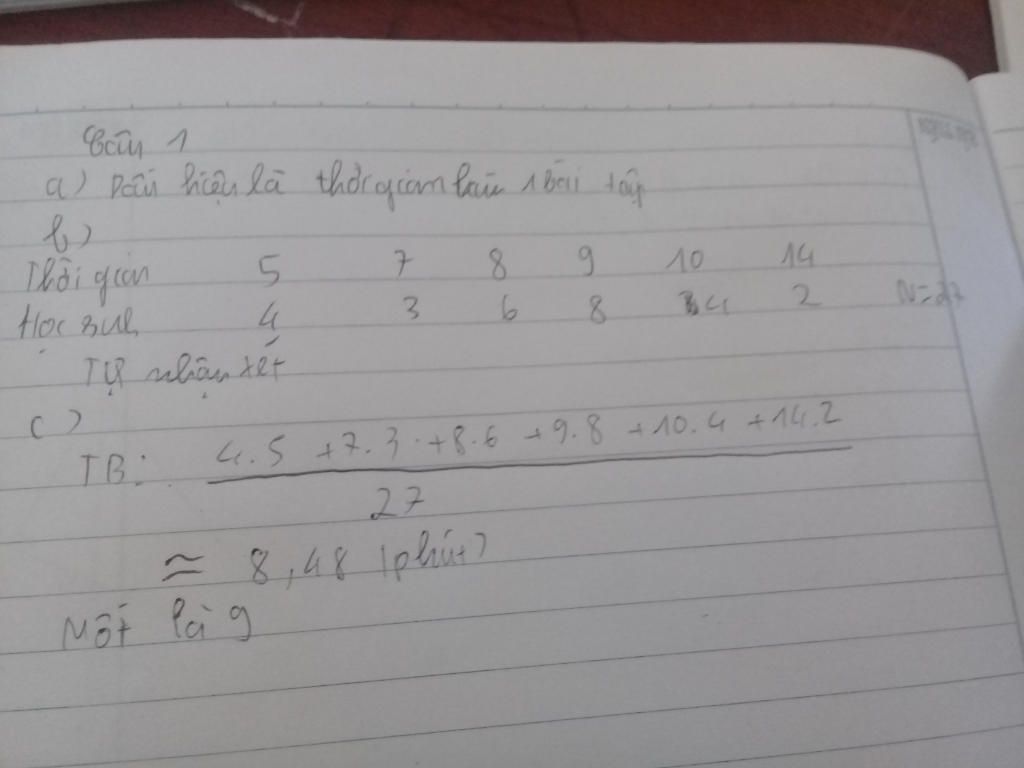 Câu 1
a) Dấu hiệu là thời gian làm 1 bài tập
b)
Thời gian 5 7 8 9 10 14
Học sinh 4 3 6 8 4 2 N=27
Tự nhận xét
c)
TB: 4.5 +7.3 +8.6 +9.8 +10.4 +14.2
27
≈ 8,48 (phút)
Mốt là 9